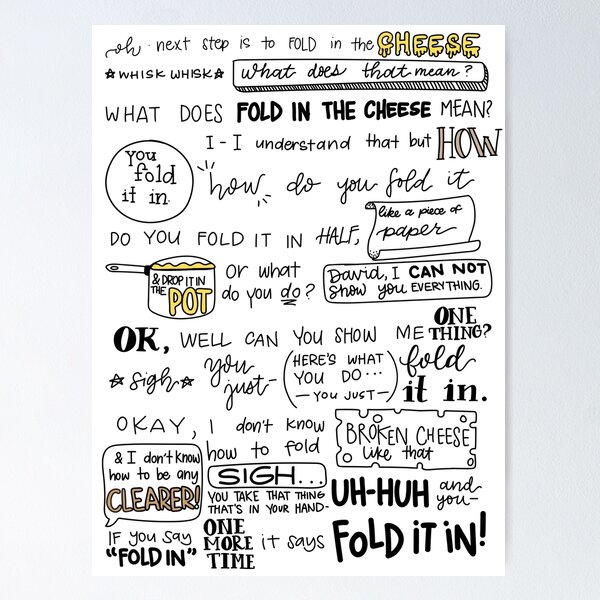 oh next step is to FOLD in the CHEESE
WHISK WHISK what does that mean?
WHAT DOES FOLD IN THE CHEESE MEAN?
you fold it in.
I-I understand that but HOW
how do you fold it
DO YOU FOLD IT IN HALF,
like a piece of
paper
& DROP IT IN
THE POT
or what
do you do?
David, I CAN NOT
Show you EVERYTHING.
OK, WELL CAN YOU SHOW ME ONE THING?
sigh you just-
HERE'S WHAT
YOU DO...
- YOU JUST -
fold
it in.
OKAY, I don't know
how to fold
BROKEN CHEESE
like that
& I don't know
how to be any
CLEARER!
SIGH...
YOU TAKE THAT THING
THAT'S IN YOUR HAND-
UH-HUH and you-
IF YOU SAY
"FOLD IN"
ONE
MORE
TIME
it says
FOLD IT IN!